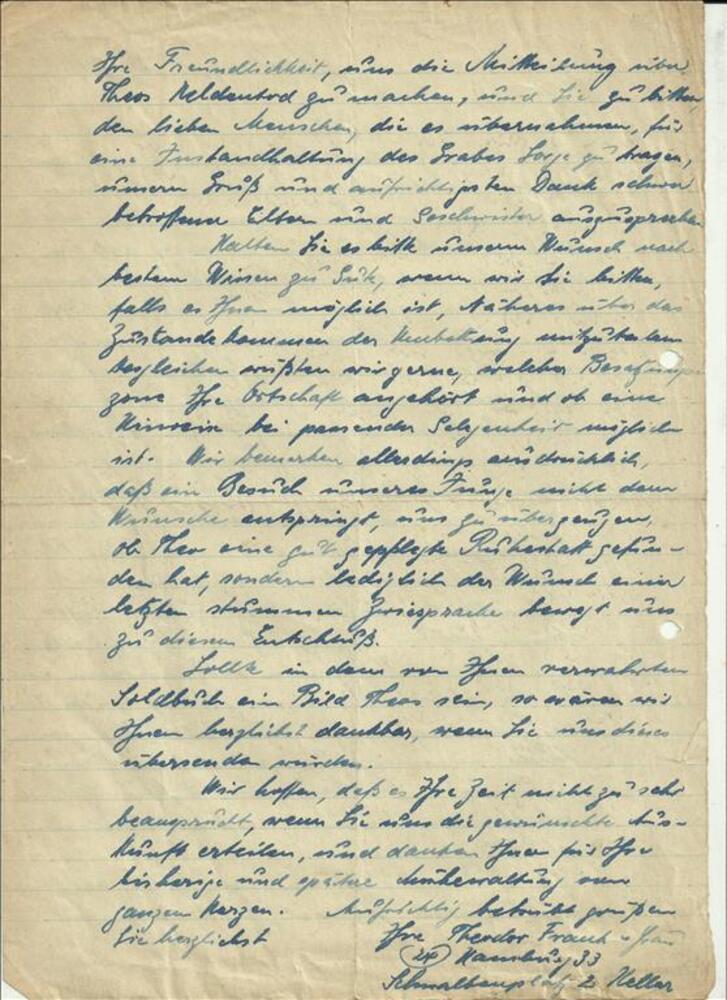 Ihre Freundlichkeit, uns die Mitteilung über
Theos Heldentod zu machen, und Sie zu bitten,
den lieben Menschen, die es übernahmen, für
eine Instandhaltung des Grabes Sorge zu tragen,
unseren Gruß und aufrichtigsten Dank schwer
betroffener Eltern und Geschwister auszusprechen
Halten Sie es bitte unserem Wunsch nach
bestem Wissen zu Gute, wenn wir Sie bitten,
falls es Ihnen möglich ist, Näheres über das
Zustandekommen der Umbettung mitzuteilen
desgleichen wüßten wir gerne, welcher Besatzungs
zone Ihre Ortschaft angehört und ob eine
Hinreise bei passender Gelegenheit möglich
ist. Wir bemerken allerdings ausdrücklich,
daß ein Besuch unseres Jungen nicht dem
Wunsche entspringt, uns zu überzeugen,
ob Theo eine gut gepflegte Ruhestatt gefun-
den hat, sondern lediglich der Wunsch einer
letzten stummen Zwiesprache bewegt uns
zu diesem Entschluß.
Sollte in dem von Ihnen verwahrten
Soldbuch ein Bild Theos sein, so wären wir
Ihnen herzlichst dankbar, wenn Sie uns dieses
übersenden würden.
Wir hoffen, daß es Ihre Zeit nicht zu sehr
beansprucht, wenn Sie uns die gewünschte Aus-
kunft erteilen, und danken Ihnen für Ihre
bisherige und spätere Mühewaltung von
ganzem Herzen. Aufrichtig betrübt grüßen
Sie herzlichst Ihre Theodor Frank u. Frau
(24) Hamburg 33
Schwalbenplatz 2 Keller